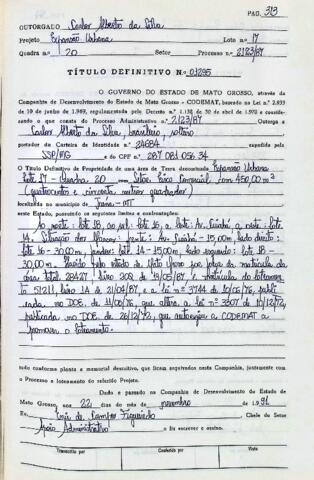 PAG. 313
OUTORGADO Carlos Alberto da Silva
Projeto Expansão Urbana Lote n.º 17
Quadra n.º 20 Setor Processo n.º 2123/87
TÍTULO DEFINITIVO N.º 01295
O GOVERNO DO ESTADO DE MATO GROSSO, através da
Companhia de Desenvolvimento do Estado de Mato Grosso - CODEMAT, baseado na Lei n.º 2.833
de 10 de junho de 1968, regulamentada pelo Decreto n.º 1.138 de 30 de abril de 1970 e consideran-
do o que consta do Processo Administrativo n.º 2.123/87 Outorga a
Carlos Alberto da Silva, brasileiro, solteiro
portador da Carteira de Identidade n.º 24684
SSP/MG e do CPF n.º 287 081 056 34
O Título Definitivo de Propriedade de uma área de Terra denominada Expansão Urbana
Lote 17 - Quadra 20 com 450,00 m²
(quatrocentos e cinquenta metros quadrados)
localizada no município de Juína - MT
neste Estado, possuindo os seguintes limites e confrontações:
Ao norte: lote 18, ao sul: lote 16, a leste: Av. Cuiabá, a oeste: lote
14. frente: Av. Cuiabá - 15,00m, lado direito:
lote 16 - 30,00m, fundos: lote 14 - 15,00m, lado esquerdo: lote 18 -
30,00m.
área total 28427 livro de 19/05/87
51211, livro 1A de 21/04/87, e a lei nº 3744 de 10/06/76, publi-
cada no DOE. de 11/06/76, que altera a lei nº 3307 de 18/12/72,
publicada no DOE. de 26/12/72, que autoriza a CODEMAT a
promover o loteamento.
tudo conforme planta e memorial descritivo, que ficam arquivados nesta Companhia, juntamente com
o Processo e loteamento do referido Projeto.
Dado e passado na Companhia de Desenvolvimento do Estado de
Mato Grosso, aos 22 dias do mês de novembro de 1.991
Eu, de Campos Figueiredo Chefe do Setor
Apoio Administrativo o fiz escrever e assino.
Transcrito por Conferido por Visto